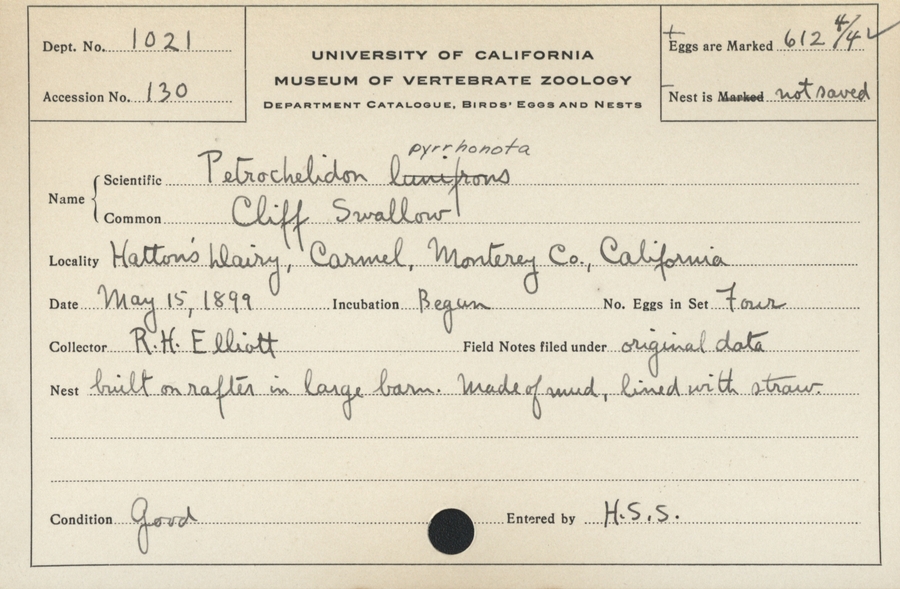 Dept. No. 1021
Accession No. 130
UNIVERSITY OF CALIFORNIA
MUSEUM OF VERTEBRATE ZOOLOGY
DEPARTMENT CATALOGUE, BIRDS' EGGS AND NESTS
Eggs are Marked 612 4/4 ✓
Nest is Marked not saved
pyrrhonota
Name
Scientific Petrochelidon lunifrons
Common Cliff Swallow
Locality Hatton's Dairy, Carmel, Monterey Co., California
Date May 15, 1899 Incubation Begun No. Eggs in Set Four
Collector R.H. Elliott Field Notes filed under original data
Nest built on rafter in large barn. Made of mud, lined with straw.
Condition Good Entered by H.S.S.